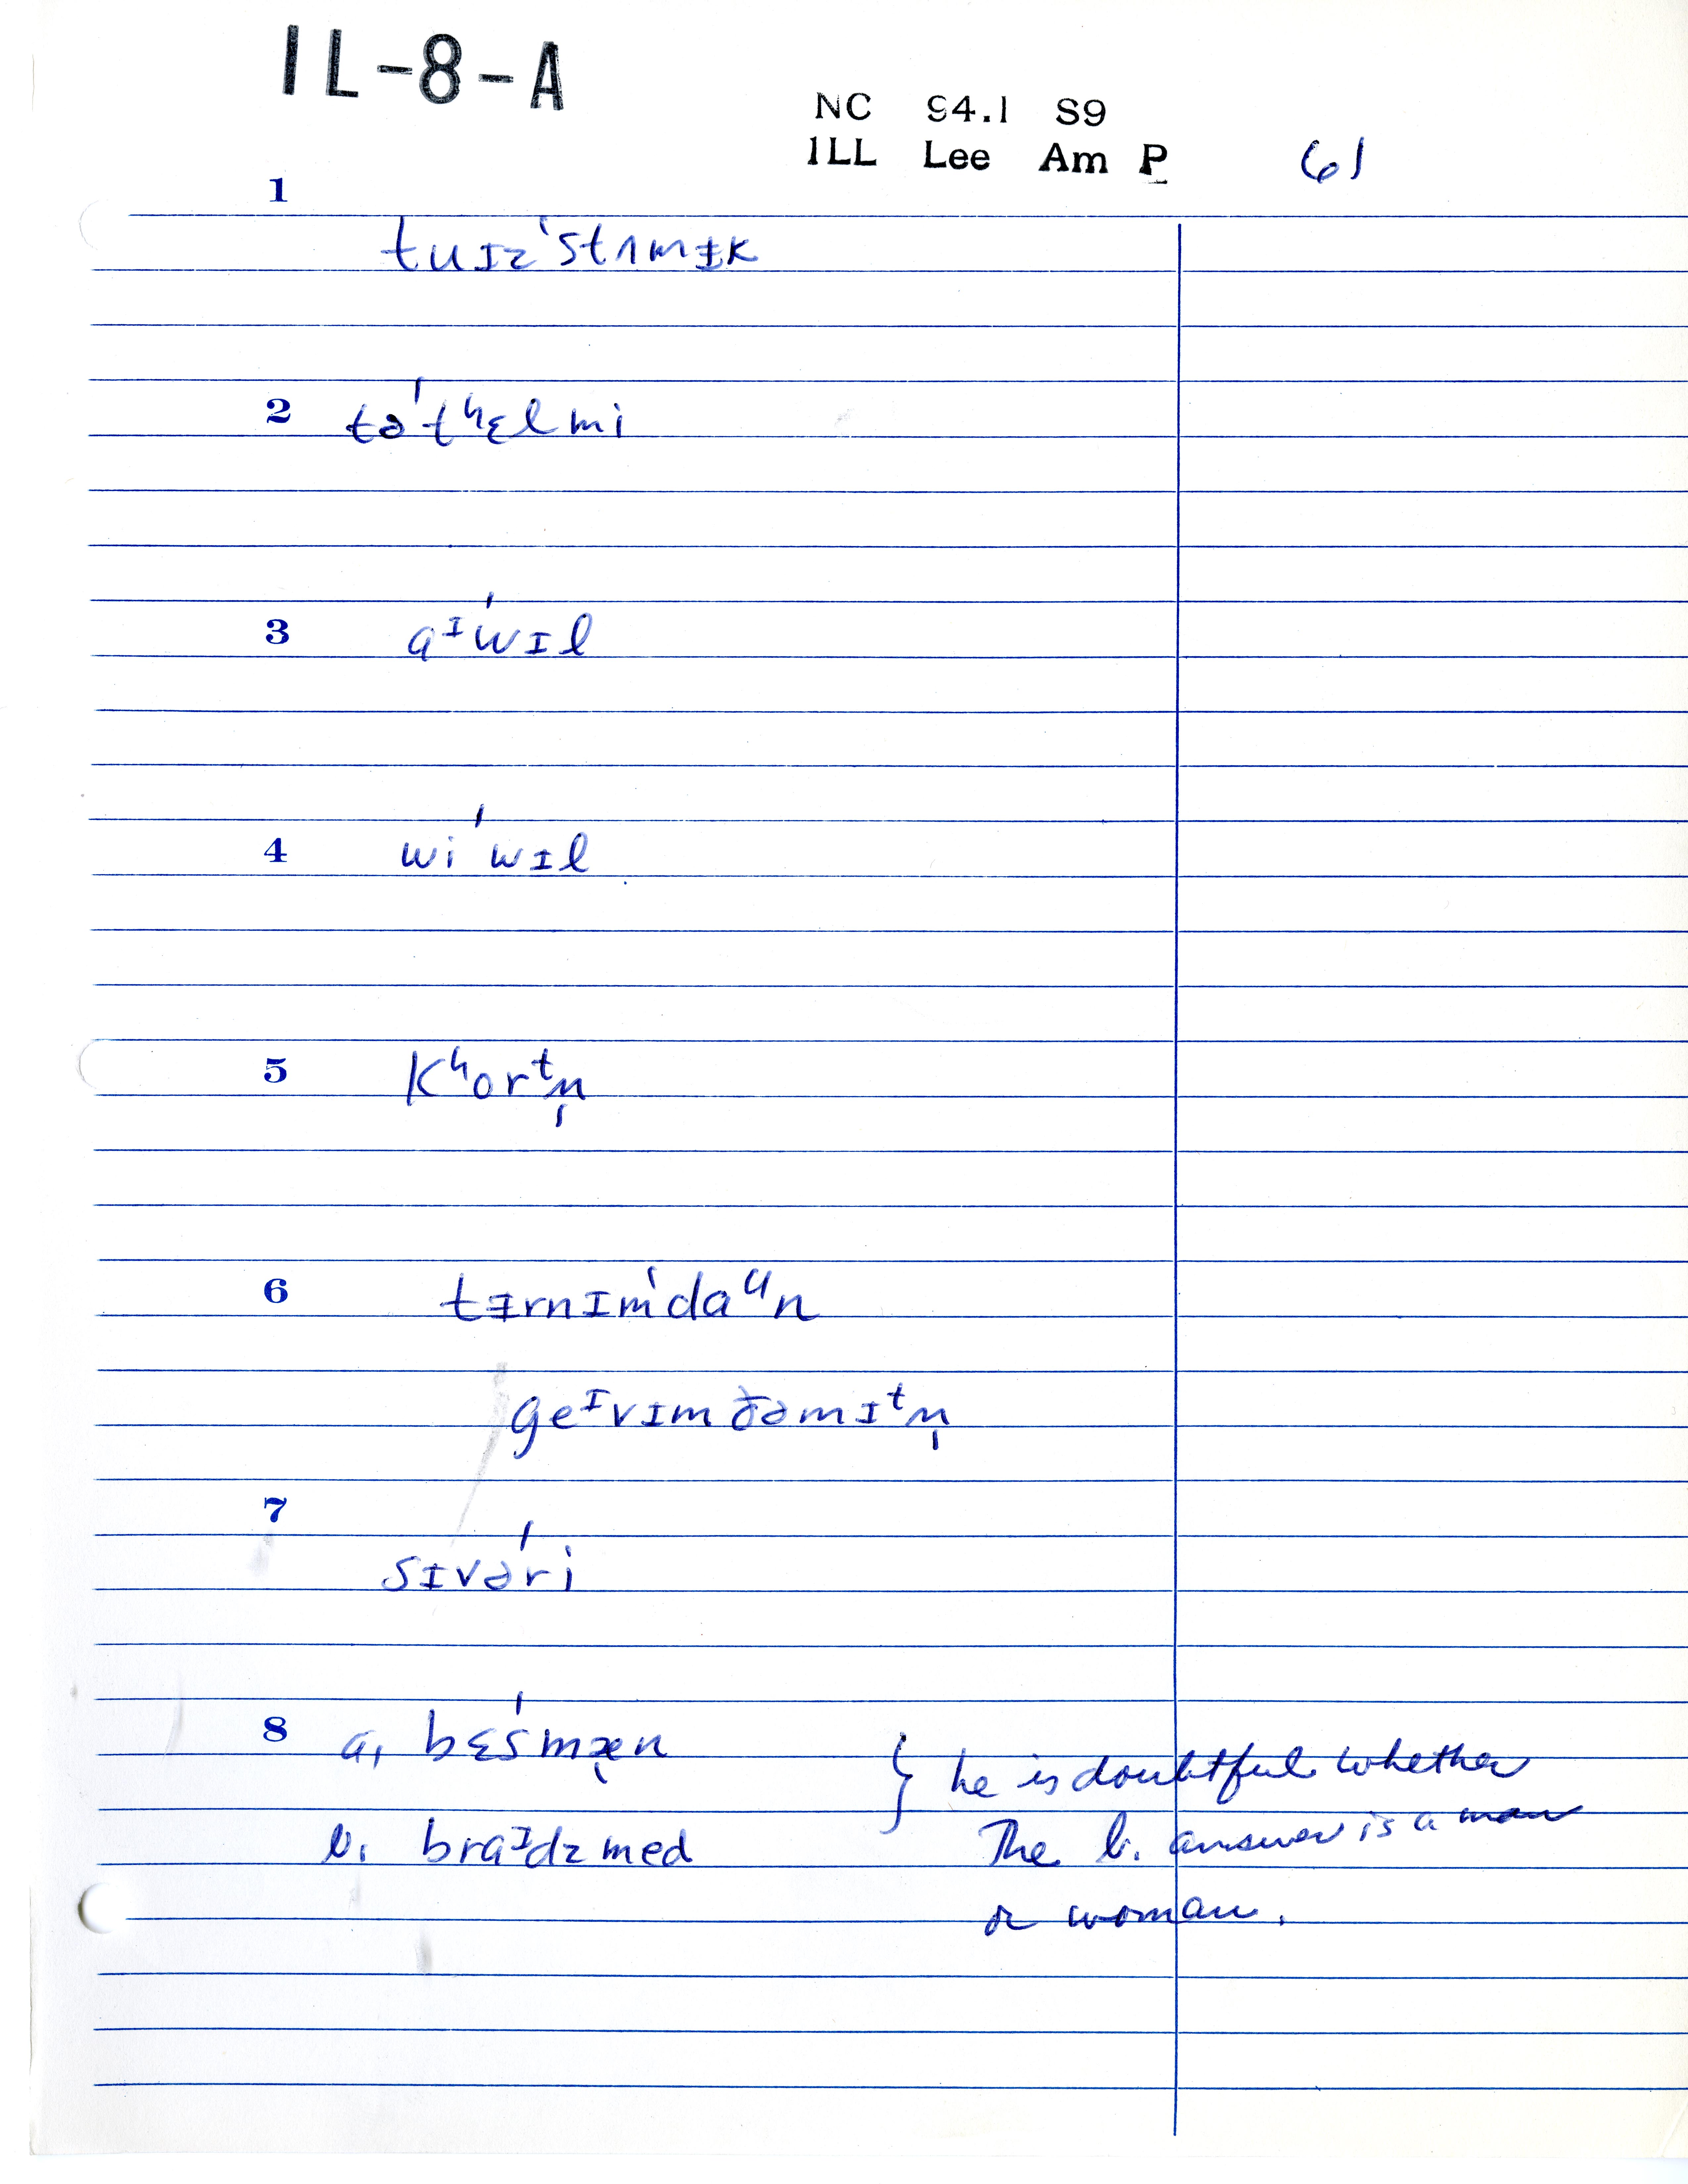 IL-8-A
NC 94.1 S9
ILL Lee Am P 61
1
tuɪz'stʌmɨk
2 tə'tʰɛlmi
3 aᶦ'wɪl
4 wi'wɪl
5 kʰorᵗn̩
6 tɨrnɪm'daᵘn
geᶦvɪmðəmɪᵗn̩
7
sɪvə'ri
8 a, bɛs'mæn
b. braᶦdzmed } he is doubtful whether
The b. answer is a man
or woman.